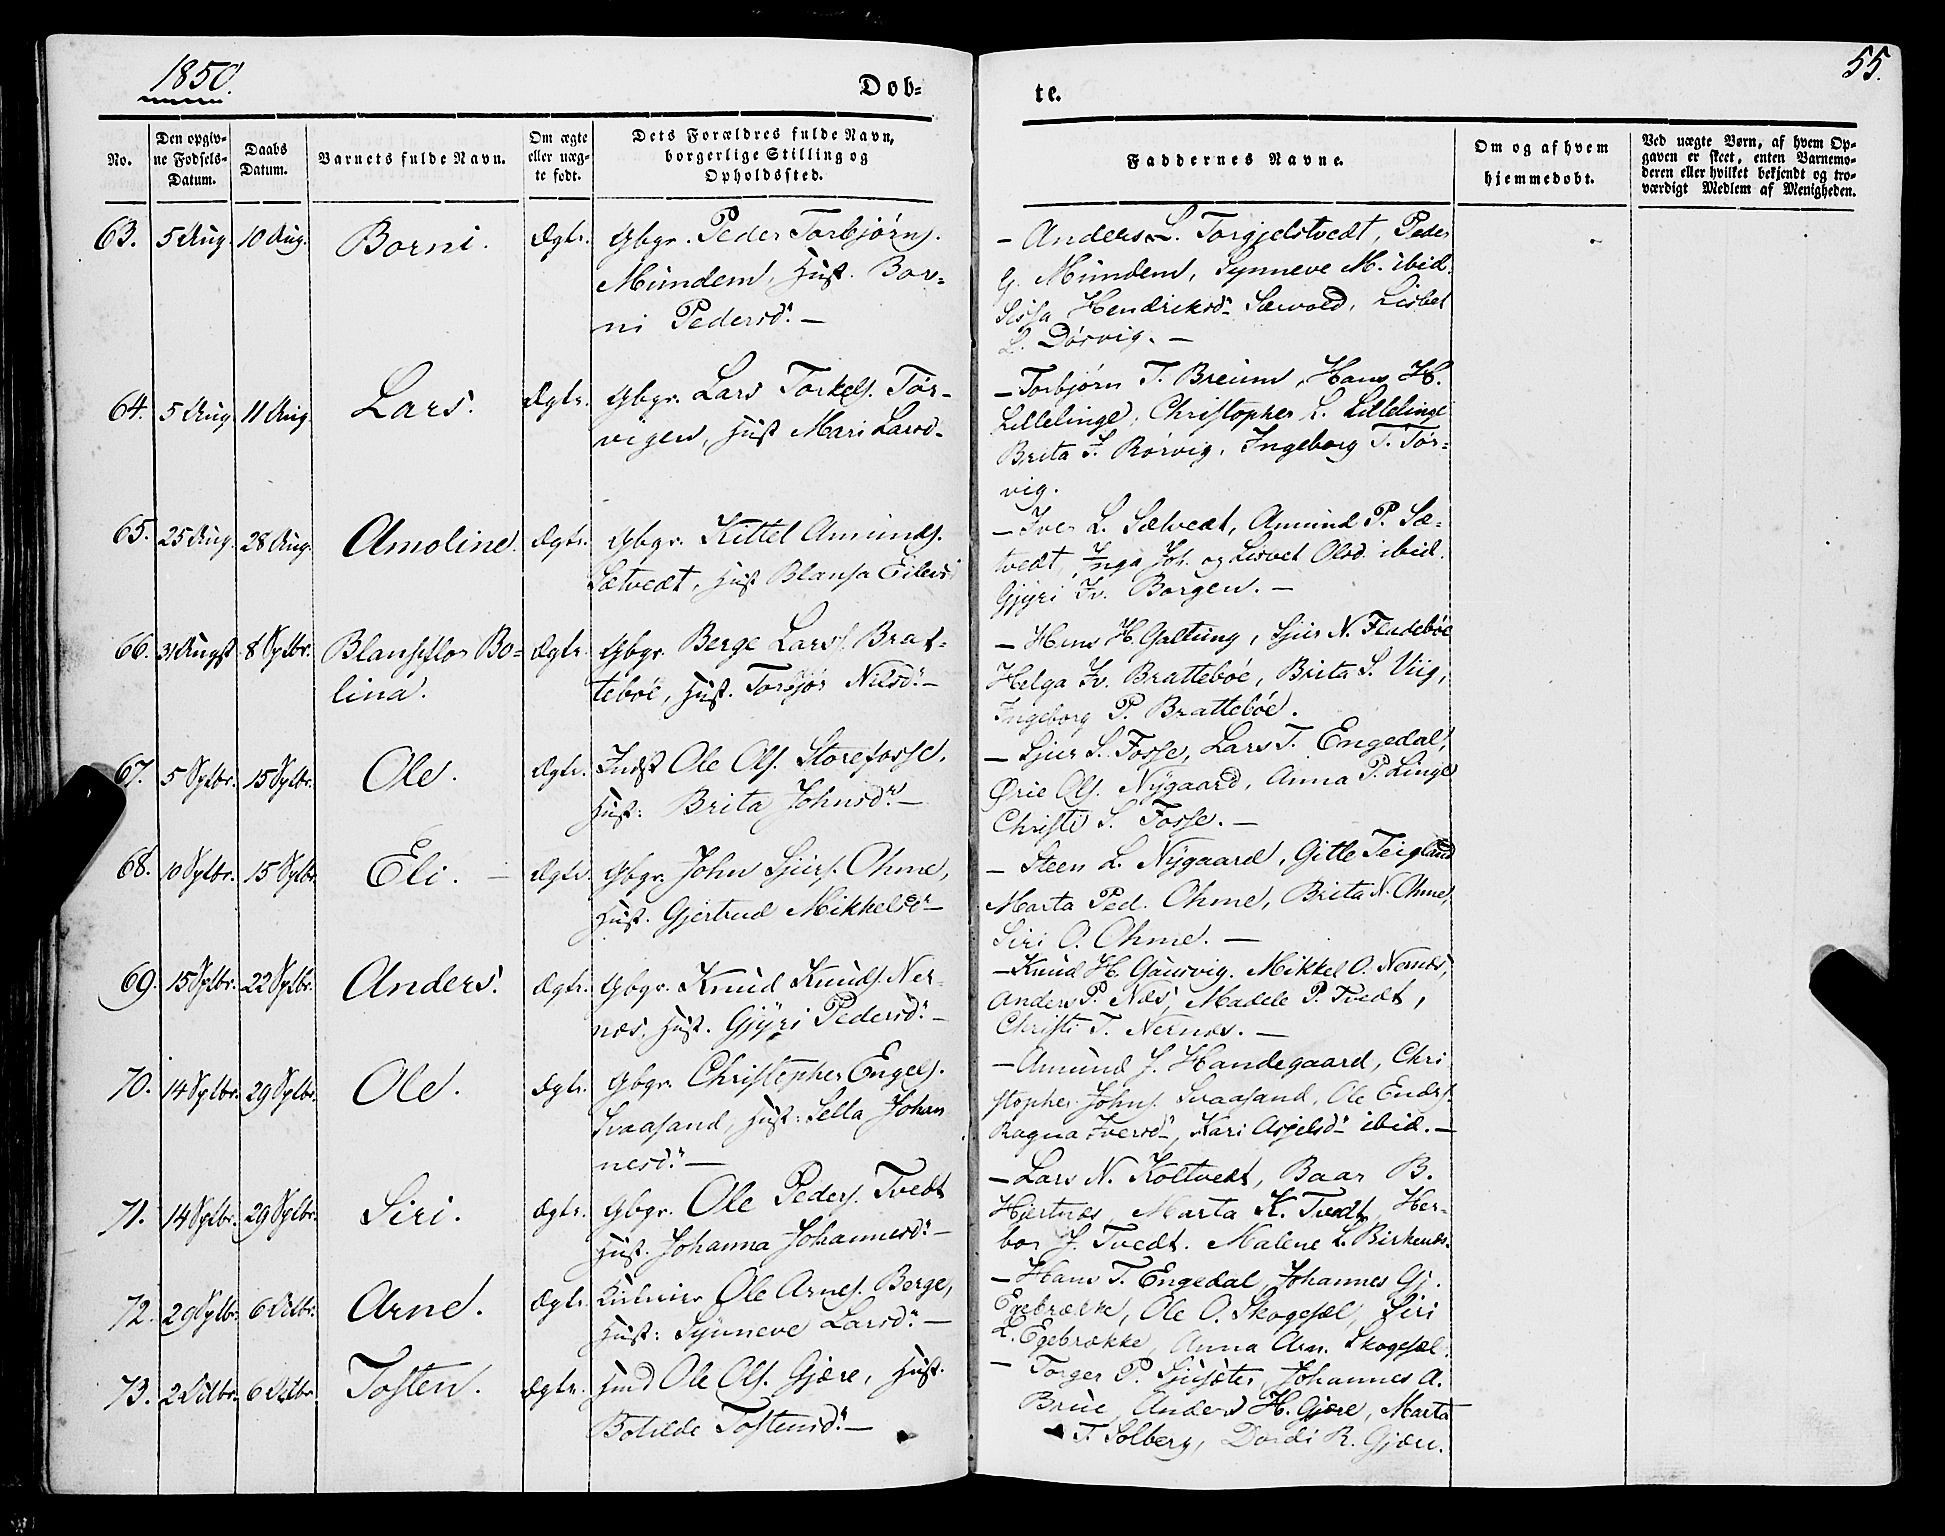 1850.
Døb-
te.
55.
No.
Den opgiv-
ne Fødsels-
Datum.
Daabs
Datum.
Barnets fulde Navn.
Om ægte
eller uæg-
te født.
Dets Forældres fulde Navn,
borgerlige Stilling og
Opholdssted.
Faddernes Navne.
Om og af hvem
hjemmedøbt.
Ved uægte Børn, af hvem Op-
gaven er skeet, enten Barnemo-
deren eller hvilket bekjendt og tro-
værdigt Medlem af Menigheden.
63. 5 Aug. 10 Aug. Borni. Ægte. Gbgr. Peder Torbjørns.
Mundem, Hust. Bor-
ni Pedersd. —
— Anders L. Torgjelstvedt, Peder
G. Mundem, Synneve M. ibid.
Sissa Hendriksd. Sævold, Lisbet
L. Dørvig. —
64. 5 Aug 11 Aug. Lars. Ægte. Gbgr. Lars Torkels. Tør-
vigen, Hust Mari Larsd.
— Torbjørn T. Breim, Hans H.
Lillelinge, Christopher L. Lillelinge
Brita I. Rørvig, Ingeborg T. Tør-
vig.
65. 25 Aug. 28 Aug. Amoline. Ægte. Gbgr. Kittel Amunds.
Sætvedt, Hust Blansa Eilevsd
— Iver L. Sætvedt, Amund P. Sæ-
tvedt, Inga Joh. og Lisvet Olsd. ibid.
Gjyri Iv. Borgen. —
66. 31 Augst 8 Sptbr. Blanseflor Bo-
lina. Ægte. Gbgr. Berge Larss. Brat-
tebøe, Hust. Torbjør Nilsd. —
— Hans H. Galtung, Sjur N. Fladebøe
Helga Iv. Brattebøe, Brita S. Viig,
Ingeborg P. Brattebøe.
67. 5 Sptbr. 15 Sptbr. Ole. Ægte. Indst Ole Ols. Storefosse,
Hust: Brita Johnsd. —
— Sjur S. Fosse, Lars T. Engedal,
Ørie Ols. Nygaard, Anna P. Linge
Christi S. Fosse. —
68. 10 Sptbr. 15 Sptbr. Eli. — Ægte. Gbgr. John Sjurs. Ohme,
Hust. Gjertrud Mikkelsd. —
— Steen L. Nygaard, Gitle Teigland
Marta Ped. Ohme, Brita N. Ohme,
Siri O. Ohme. —
69. 15 Sptbr. 22 Sptbr. Anders. Ægte. Gbgr. Knud Knuds. Ner-
næs, Hust. Gjyri Pedersd. —
— Knud H. Gausvig. Mikkel O. Nernæs,
Anders P. Næs, Madele P. Tvedt,
Christi T. Nernæs. —
70. 14 Sptbr. 29 Sptbr. Ole. Ægte. Gbgr. Christopher Engels.
Svaasand, Hust: Sella Johan
nesd. —
— Amund J. Handegaard, Chri
stopher Johns. Svaasand, Ole Endrs.
Ragna Iversd., Kari Asjelsd. ibid. —
71. 14 Sptbr. 29 Sptbr. Siri. Ægte. Gbgr. Ole Peders. Tvedt
Hust. Johanna Johannesd. —
— Lars N. Koltvedt, Baar B.
Hjertnæs, Marta K. Tvedt, Her-
bor J. Tvedt. Malene L. Birkenæs.
72. 29 Sptbr. 6 Octbr. Arne. Ægte. Ole Arnes. Berge,
Hust: Synneve Larsd. —
— Hans T. Engedal, Johannes Gj.
Egebrække, Ole O. Skogesæl, Siri
L. Egebrække, Anna Arn. Skogesæl.
73. 2 Octbr. 6 Octbr. Tosten. Ægte. Ole Ols. Gjære, Hust.
Botilde Tostensd. —
— Torger P. Johannes A.
Brue, Anders H. Gjære, Marta
T. Solberg, Dordi R. Gjære.